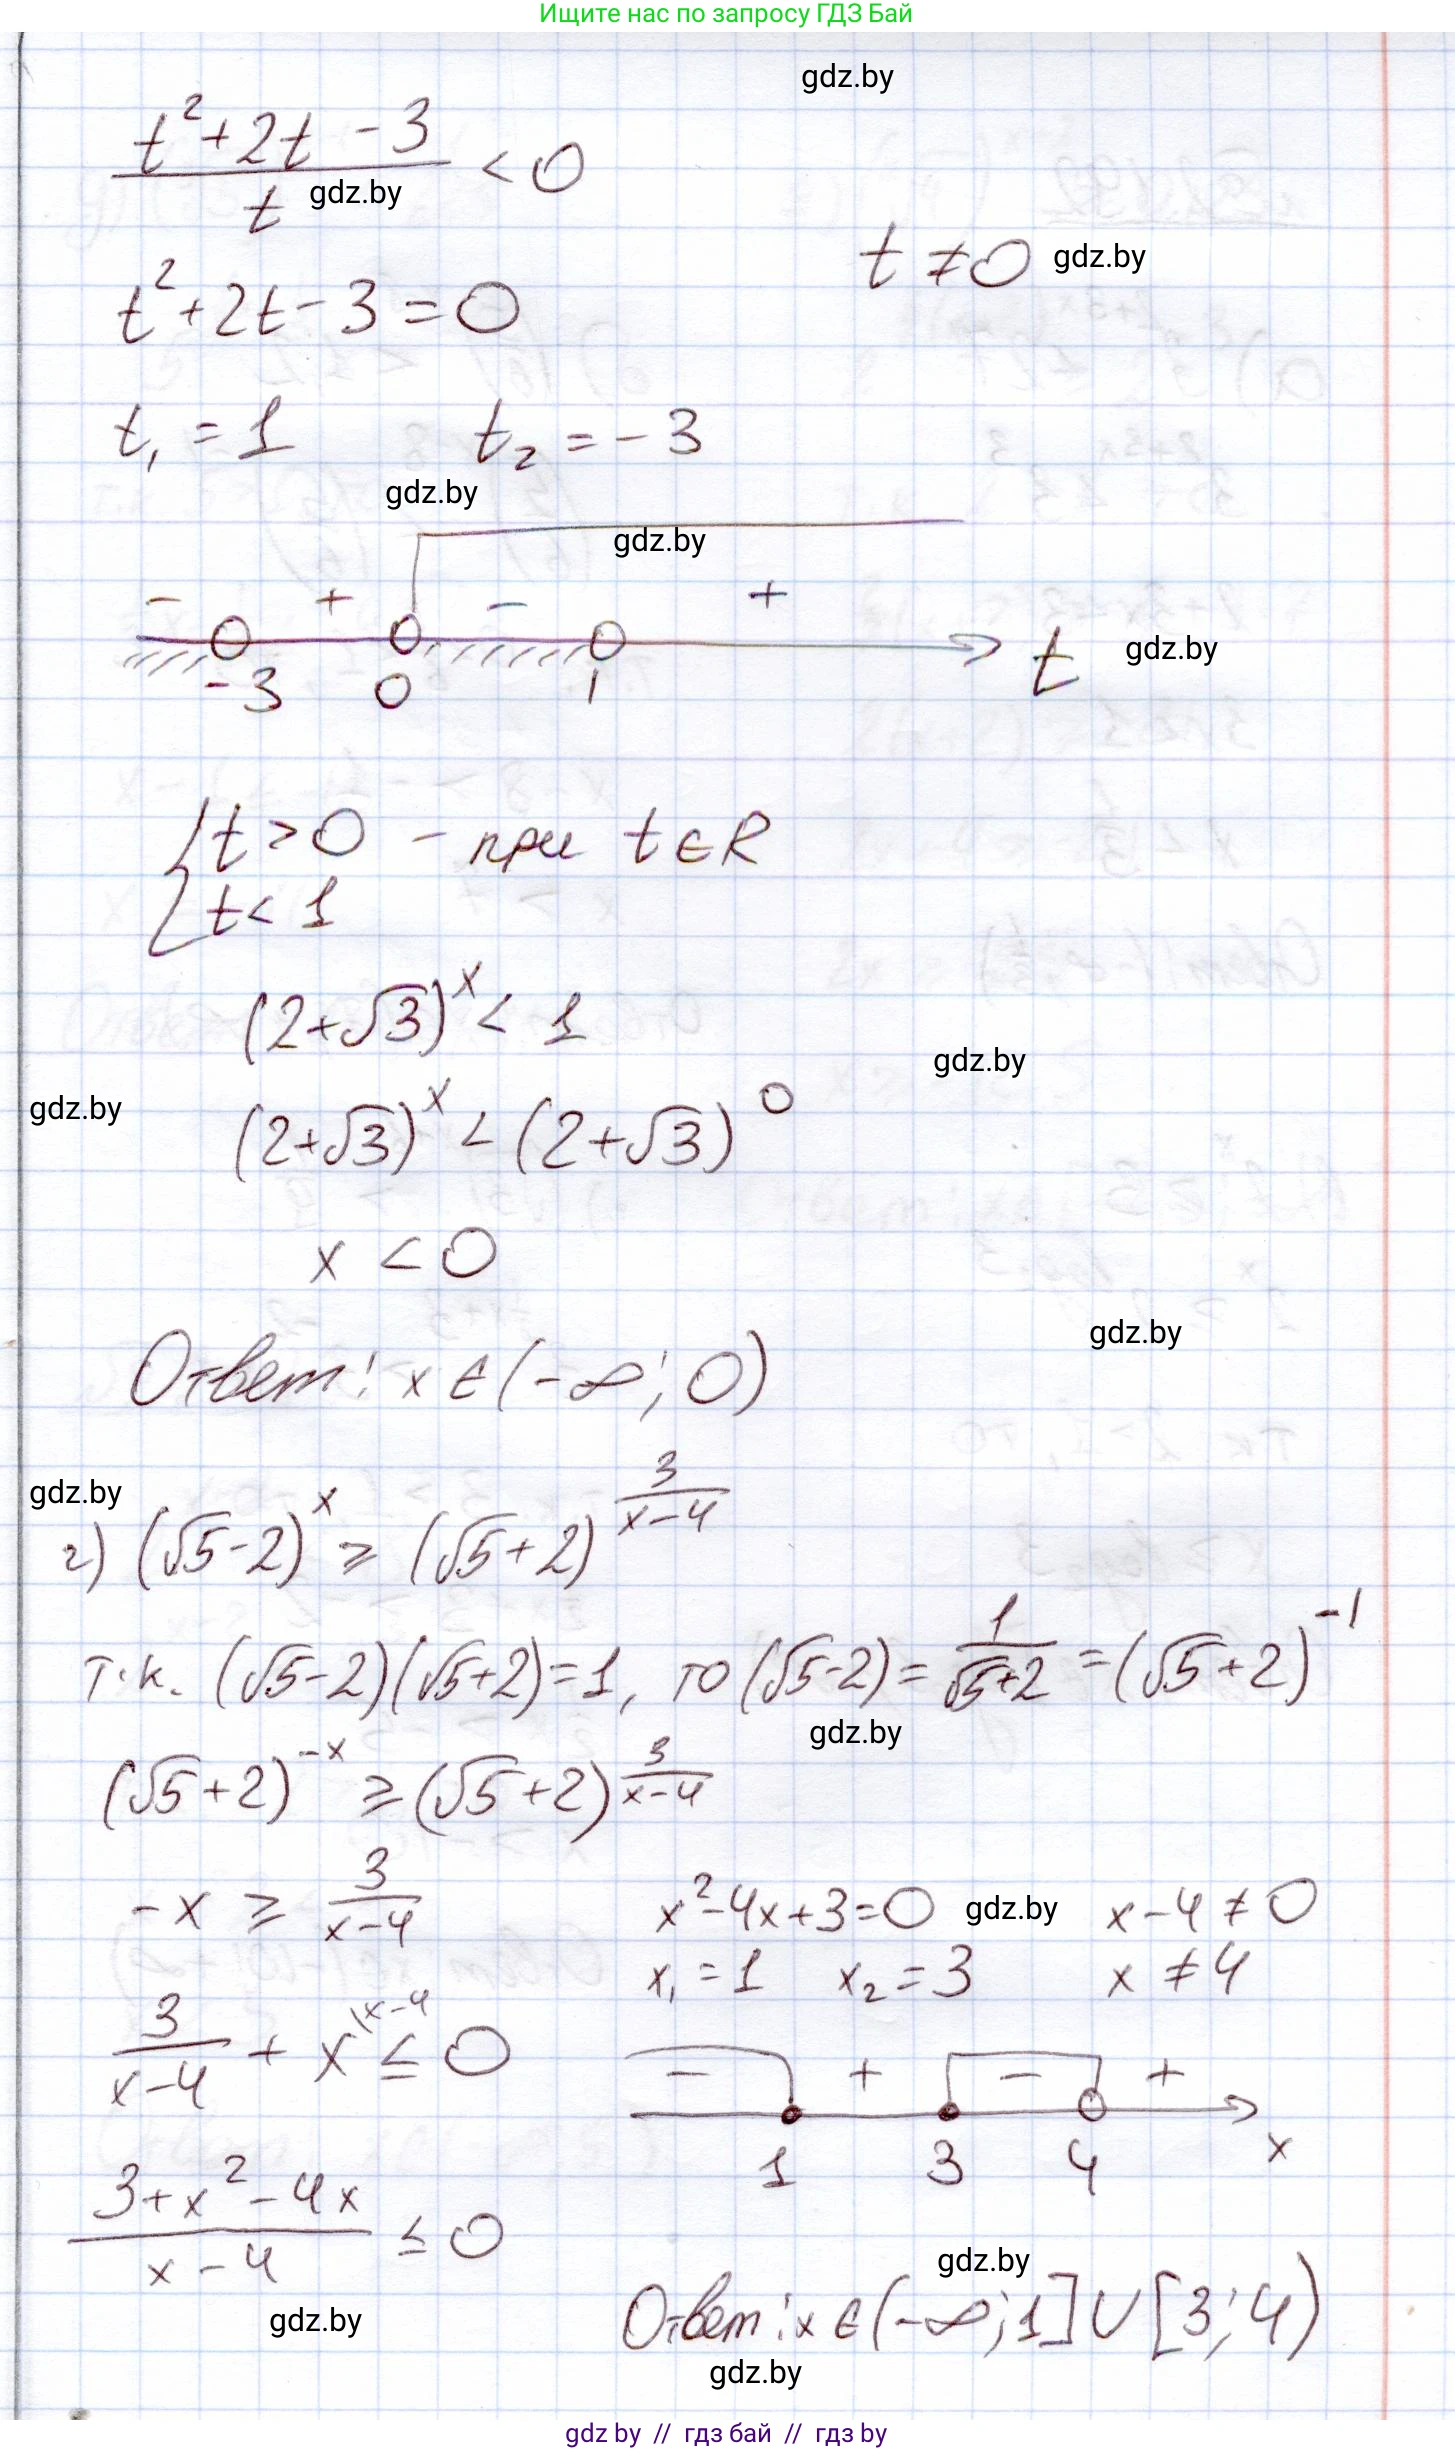 Ищите нас по запросу ГДЗ Бай
gdz.by
(t² + 2t - 3)/t < 0
gdz.by
t ≠ 0 gdz.by
t² + 2t - 3 = 0
t₁ = 1 t₂ = -3
gdz.by
gdz.by
- + - +
-3 0 1 t gdz.by
{ t > 0 - при t ∈ R
t < 1
(2+√3)^x < 1
gdz.by
gdz.by
(2+√3)^x < (2+√3)^0
x < 0
gdz.by
Ответ: x ∈ (-∞; 0)
gdz.by
г) (√5-2)^x ≥ (√5+2)^(3/(x-4))
т.к. (√5-2)(√5+2)=1, то (√5-2) = 1/(√5+2) = (√5+2)^(-1)
gdz.by
(√5+2)^(-x) ≥ (√5+2)^(3/(x-4))
-x ≥ 3/(x-4)
3/(x-4) + x^(\x-4) ≤ 0
(3+x²-4x)/(x-4) ≤ 0
gdz.by
x²-4x+3=0 gdz.by x-4 ≠ 0
x₁ = 1 x₂ = 3 x ≠ 4
- + - +
1 3 4 x
gdz.by
Ответ: x ∈ (-∞; 1] ∪ [3; 4)
gdz.by
gdz by // гдз бай // гдз by